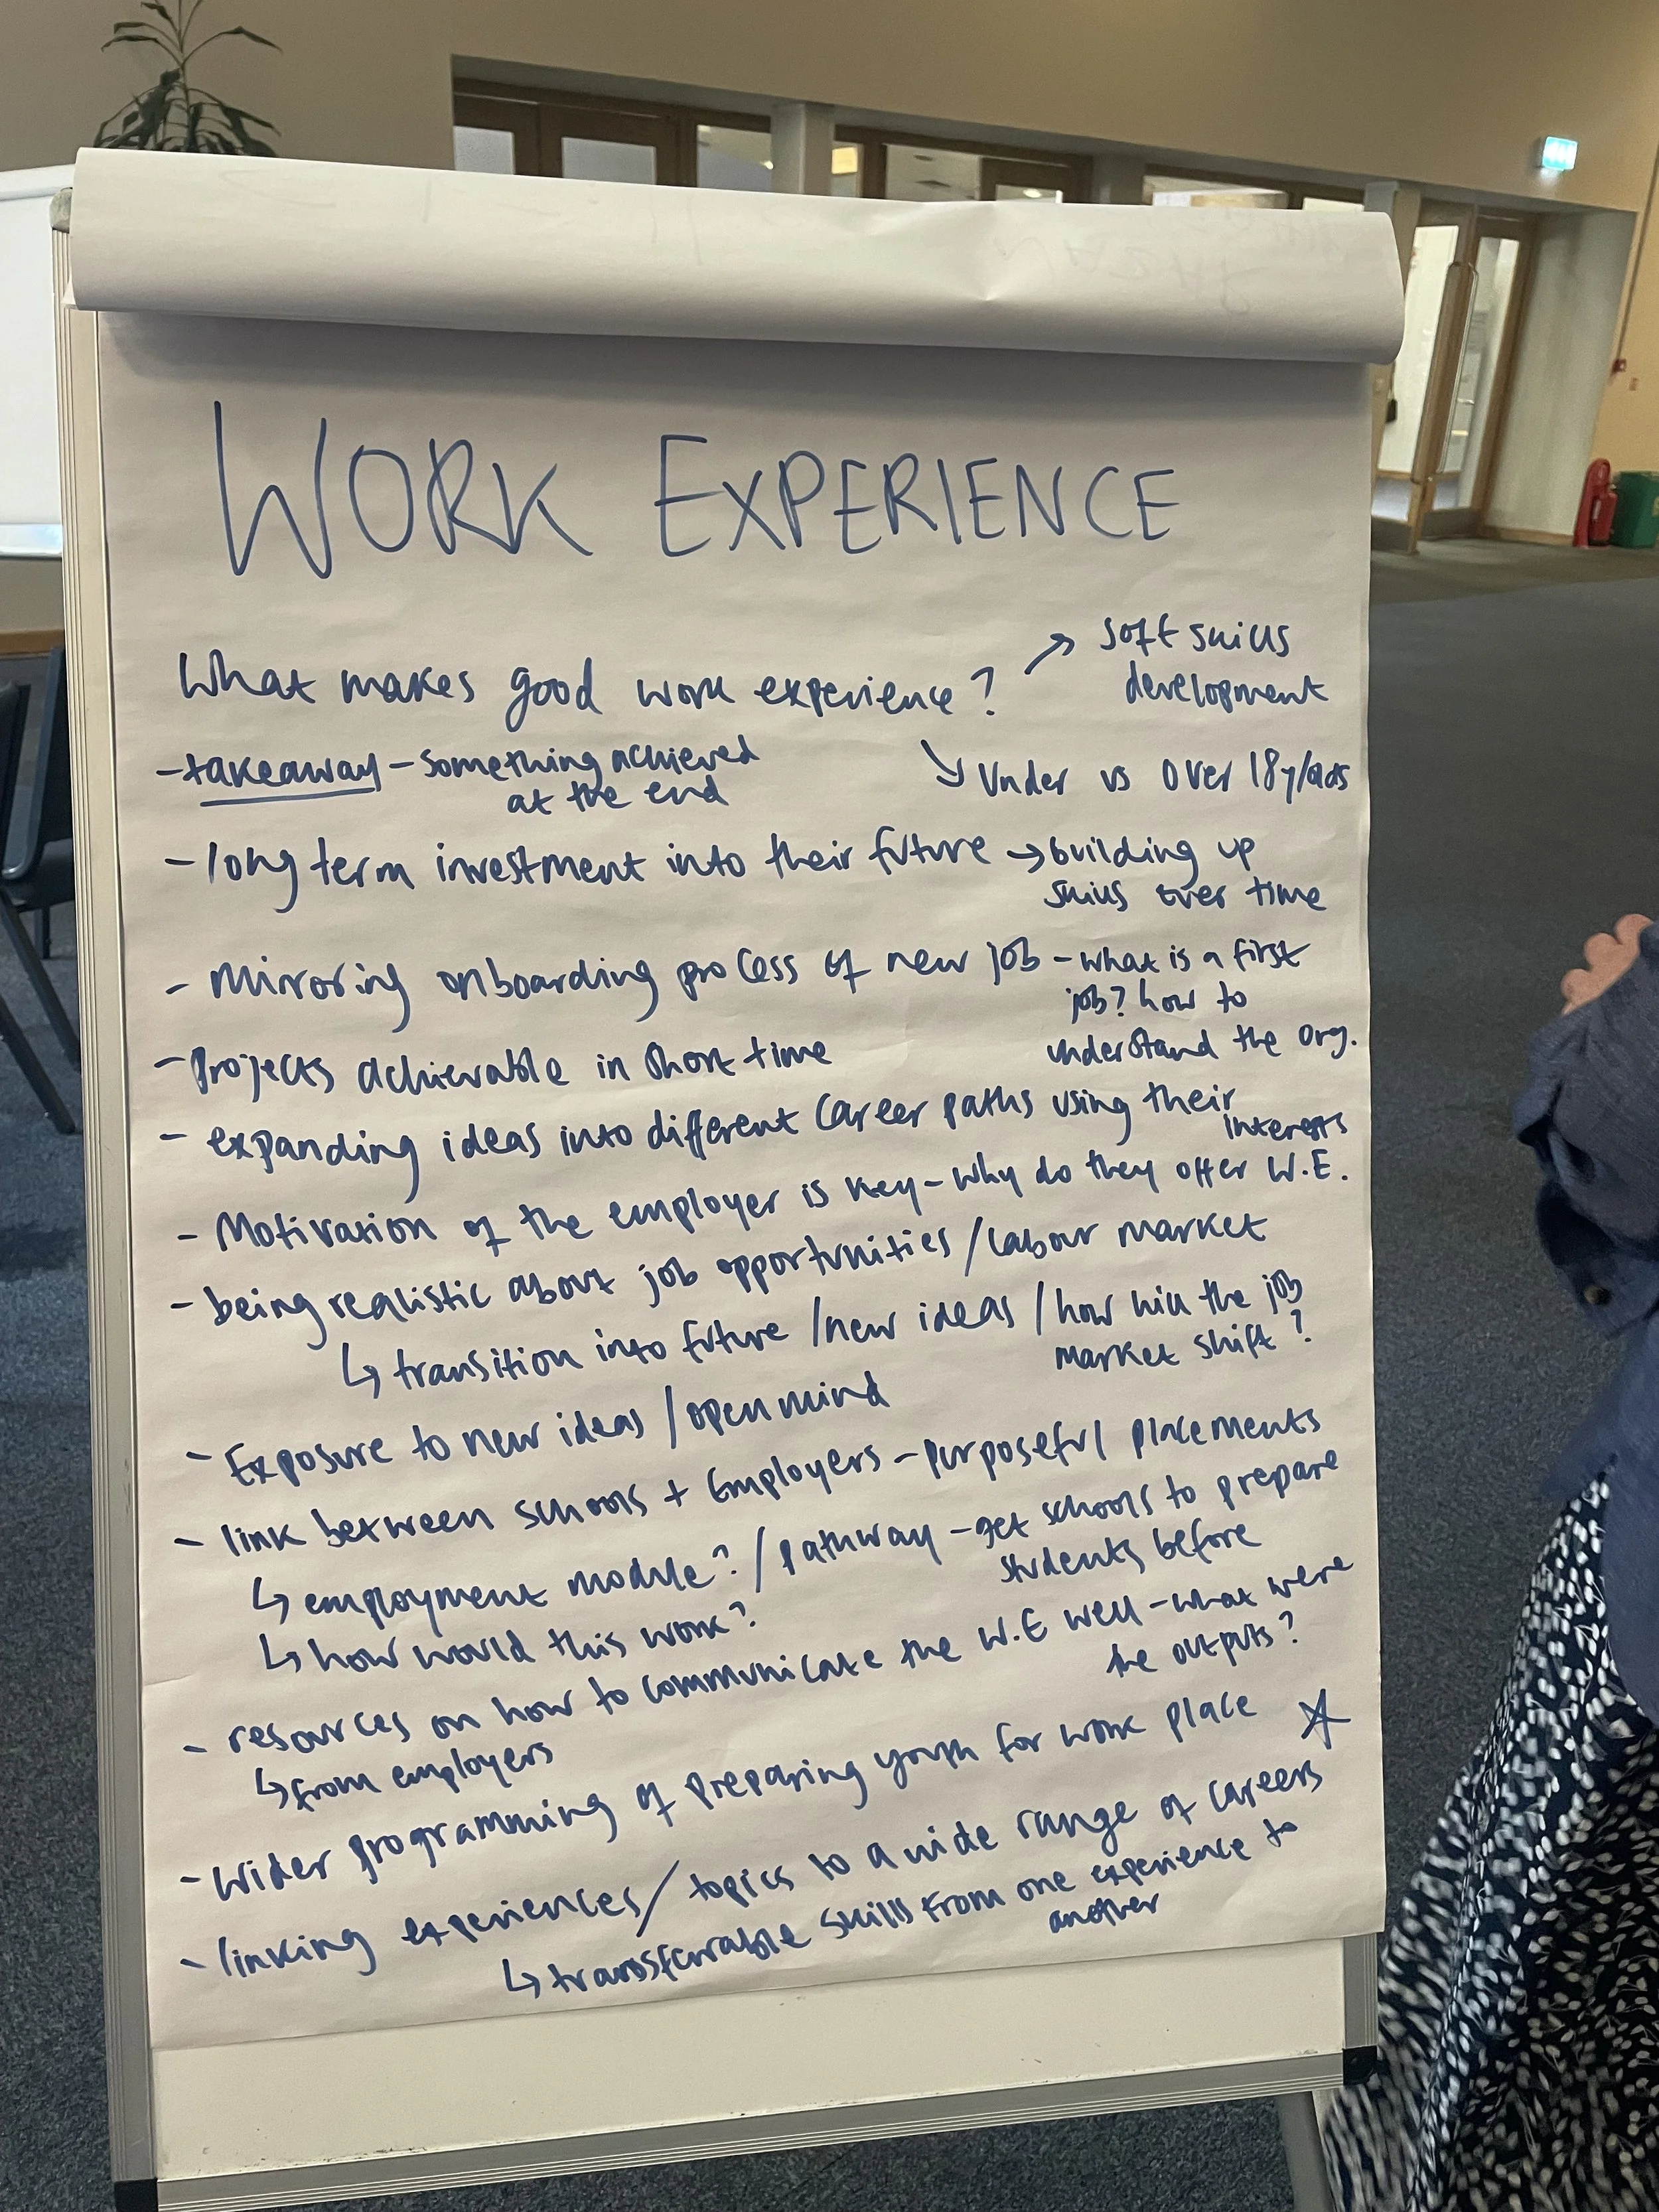 WORK EXPERIENCE
What makes good work experience? ↗ soft skills
development
↘ Under vs Over 18y/olds
- takeaway - something achieved
at the end
- long term investment into their future → building up
skills over time
- Mirroring onboarding process of new job - what is a first
job? how to
understand the org.
- Projects achievable in short time
- expanding ideas into different career paths using their
interests
- Motivation of the employer is key - why do they offer W.E.
- being realistic about job opportunities / labour market
↳ transition into future / new ideas / how will the job
market shift?
- Exposure to new ideas / open mind
- link between schools + Employers - purposeful placements
↳ employment module? / pathway - get schools to prepare
students before
↳ how would this work?
- resources on how to communicate the W.E well - what were
the outputs?
↳ from employers
- Wider programming of preparing youth for work place ☆
- linking experiences / topics to a wide range of careers
↳ transferrable skills from one experience to
another